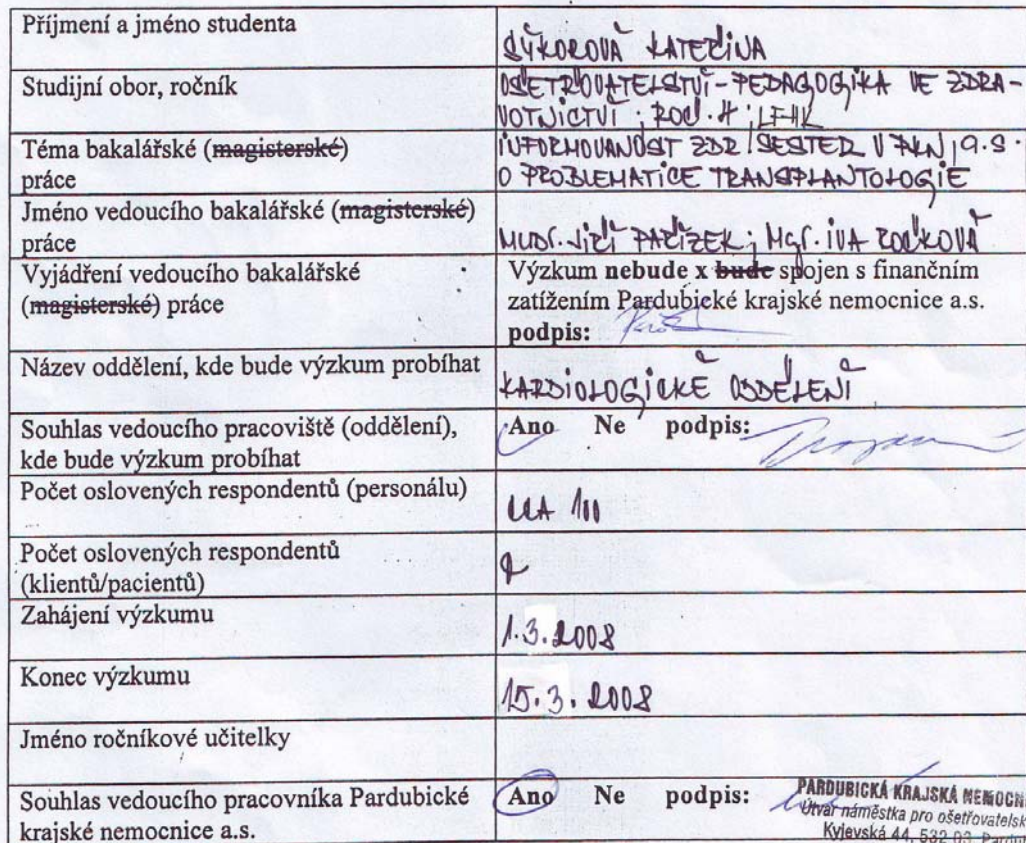 Příjmení a jméno studenta
SÝKOROVÁ KATEŘINA
Studijní obor, ročník
OŠETŘOVATELSTVÍ - PEDAGOGIKA VE ZDRA-
VOTNICTVÍ; ROČ. 4; LFHK
Téma bakalářské (magisterské)
práce
INFORMOVANOST ZDR. SESTER V PKN, a.s.
O PROBLEMATICE TRANSPLANTOLOGIE
Jméno vedoucího bakalářské (magisterské)
práce
MUDr. JIŘÍ PAŘÍZEK; Mgr. IVA ROČKOVÁ
Vyjádření vedoucího bakalářské
(magisterské) práce
Výzkum nebude x bude spojen s finančním
zatížením Pardubické krajské nemocnice a.s.
podpis:
Název oddělení, kde bude výzkum probíhat
KARDIOLOGICKÉ ODDĚLENÍ
Souhlas vedoucího pracoviště (oddělení),
kde bude výzkum probíhat
Ano Ne podpis:
Počet oslovených respondentů (personálu)
100
Počet oslovených respondentů
(klientů/pacientů)
Zahájení výzkumu
1.3.2008
Konec výzkumu
15.3.2008
Jméno ročníkové učitelky
Souhlas vedoucího pracovníka Pardubické
krajské nemocnice a.s.
Ano Ne podpis:
PARDUBICKÁ KRAJSKÁ NEMOCN
Útvar náměstka pro ošetřovatelsk
Kyjevská 44, 532 03 Pardu